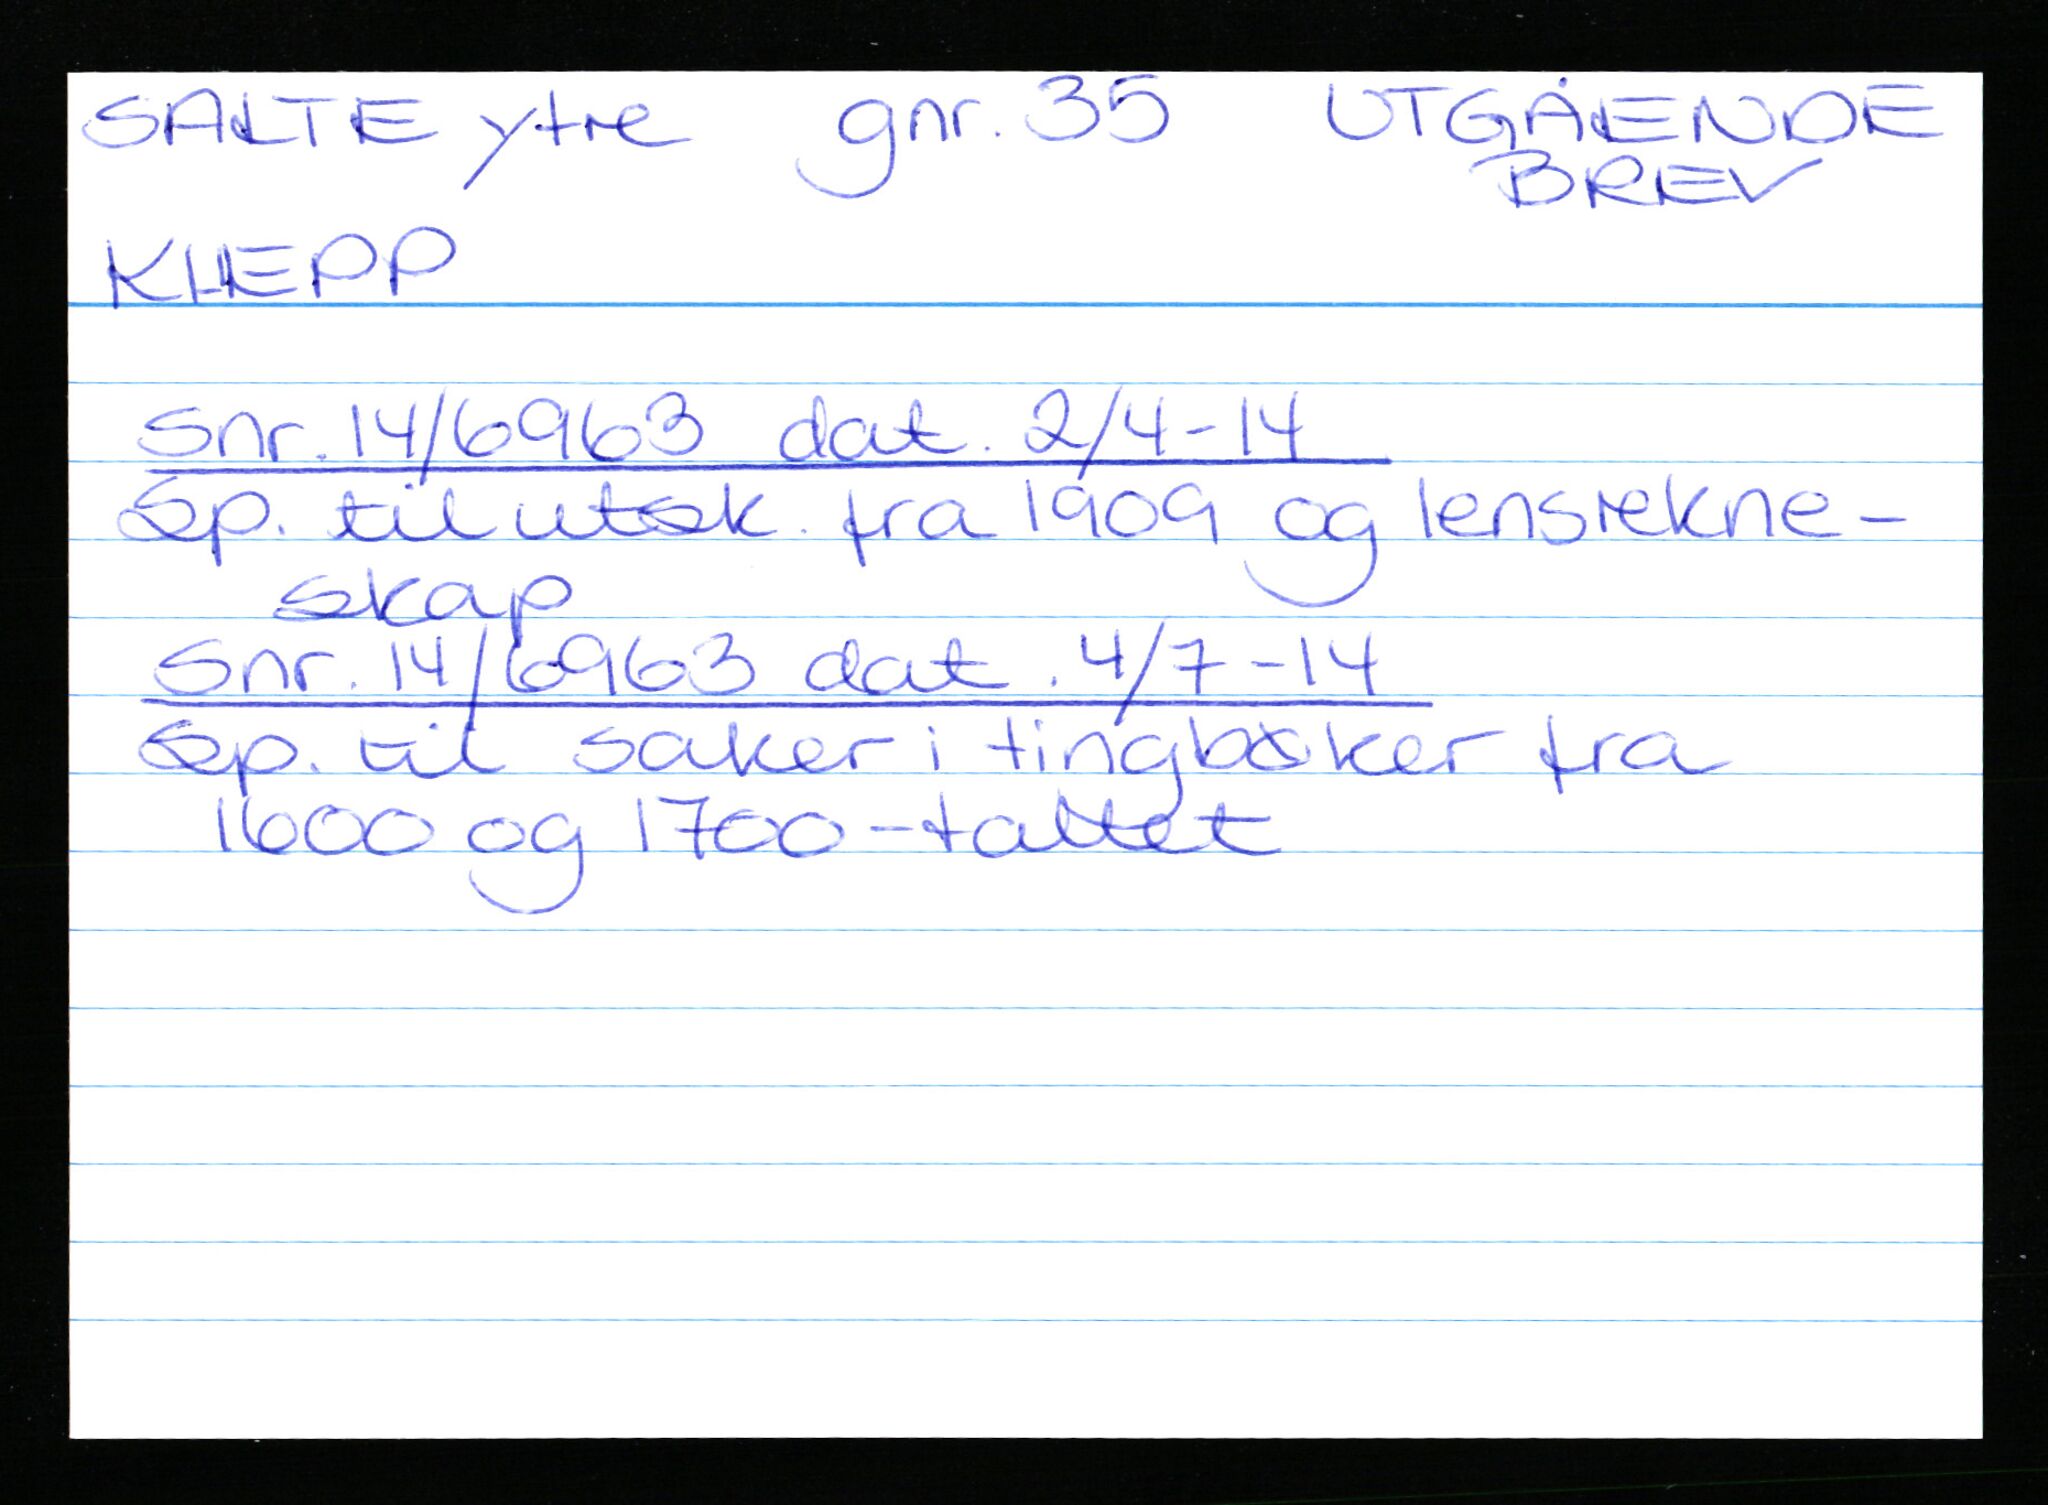 SALTE ytre gnr. 35 UTGÅENDE
BREV
KLEPP
Snr. 14/6963 dat. 2/4-14
Sp. til utsk. fra 1909 og lensrekne-
skap
Snr. 14/6963 dat. 4/7-14
Sp. til saker i tingbøker fra
1600 og 1700-tallet